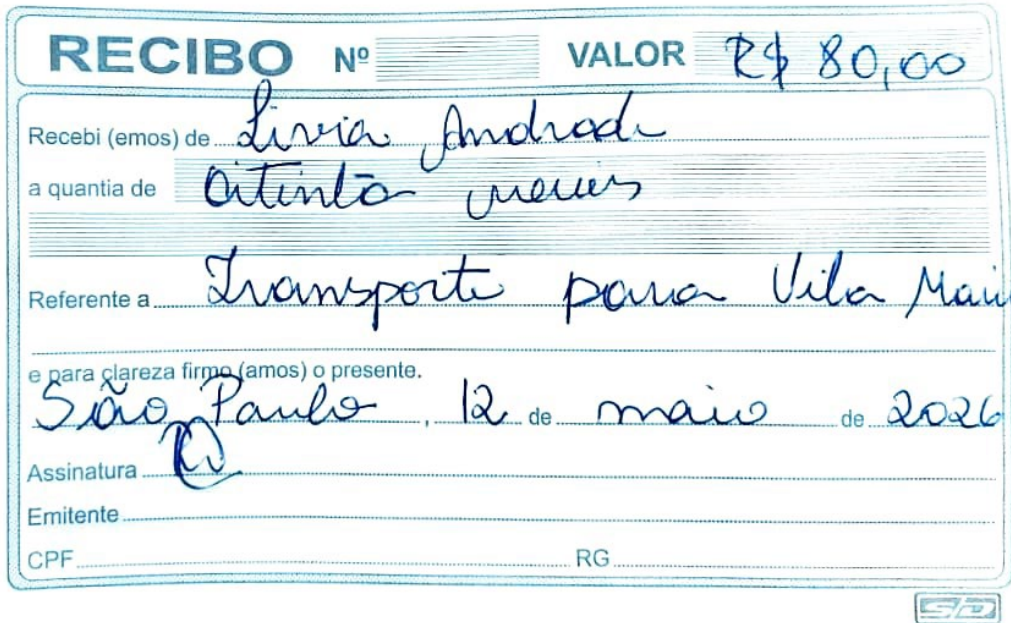 RECIBO Nº VALOR R$ 80,00
Recebi (emos) de Livia Andrade
a quantia de Oitenta reais
Referente a Transporte para Vila Mari
e para clareza firmo (amos) o presente.
São Paulo, 12 de maio de 2026
Assinatura
Emitente
CPF RG